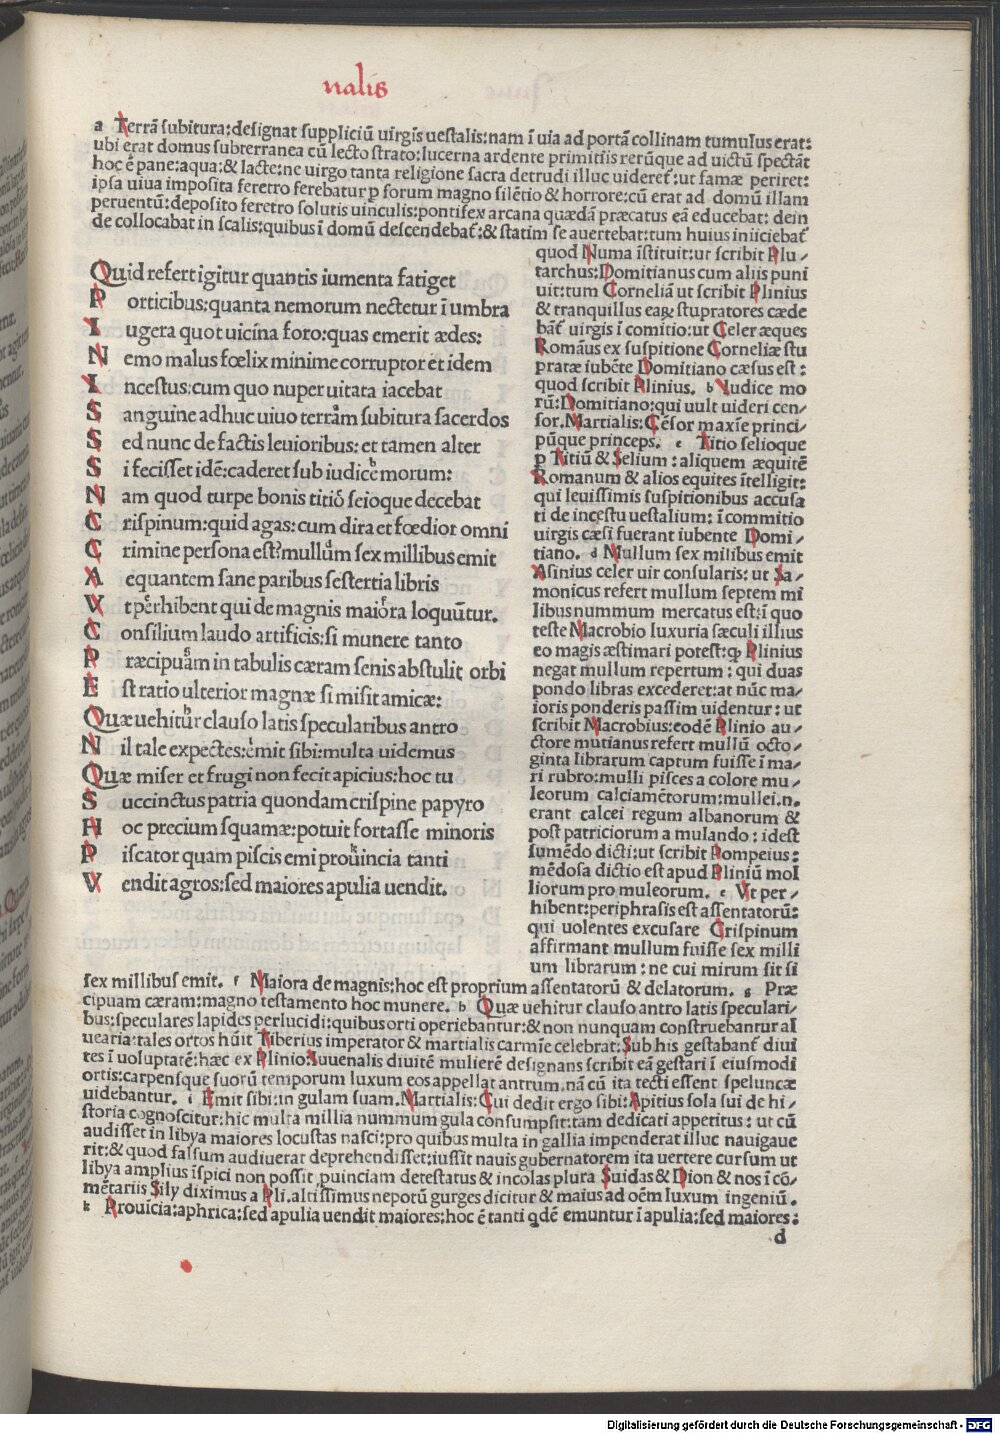 nalis
a Terrã subitura:designat suppliciũ uirgĩs uestalis:nam ĩ uia ad portã collinam tumulus erat:
ubi erat domus subterranea cũ lecto strato:lucerna ardente primitiis rerũque ad uictũ spectãt
hoc ẽ pane:aqua:& lacte:ne uirgo tanta religione sacra detrudi illuc uideret̃:ut famæ periret:
ipsa uiua imposita feretro ferebatur ꝑ forum magno silẽtio & horrore:cũ erat ad domũ illam
peruentũ:deposito feretro solutis uinculis:pontifex arcana quædã præcatus eã educebat: dein
de collocabat in scalis:quibus ĩ domũ descendebat̃:& statim se auertebat:tum huius iniiciebat̃
Quid refert igitur quantis iumenta fatiget
P orticibus:quanta nemorum nectetur ĩ umbra
I ugera quot uicina foro:quas emerit ædes:
N emo malus fœlix minime corruptor et idem
I ncestus:cum quo nuper uitata iacebat
S anguine adhuc uiuo terrãm subitura sacerdos
S ed nunc de factis leuioribus: et tamen alter
S i fecisset idẽ:caderet sub iudice morum:
N am quod turpe bonis titio seioque decebat
C rispinum:quid agas:cum dira et fœdior omni
C rimine persona est?mullum sex millibus emit
A equantem sane paribus sestertia libris
V t perhibent qui de magnis maiora loquũtur.
C onsilium laudo artificis:si munere tanto
P ræcipuam in tabulis cæram senis abstulit orbi
E st ratio ulterior magnæ si misit amicæ:
Quæ uehitur clauso latis specularibus antro
N il tale expectes:emit sibi:multa uidemus
Quæ miser et frugi non fecit apicius:hoc tu
S uccinctus patria quondam crispine papyro
H oc precium squamæ:potuit fortasse minoris
P iscator quam piscis emi prouincia tanti
V endit agros:sed maiores apulia uendit.
quod Numa ĩstituit:ut scribit Plu-
tarchus:Domitianus cum aliis puni
uit:tum Corneliã ut scribit Plinius
& tranquillus eaꝝ stupratores cæde
bãt̃ uirgis ĩ comitio:ut Celer æques
Romãus ex suspitione Corneliæ stu
pratæ iubẽte Domitiano cæsus est:
quod scribit Plinius. b Iudice mo
rũ:Domitiano:qui uult uideri cen-
sor.Martialis:Cẽsor maxĩe princi-
pũque princeps. c Titio seiioque
ꝑ Titiũ & Seium: aliquem æquitẽ
Romanum & alios equites ĩtelligit:
qui leuissimis suspitionibus accusa
ti de incestu uestalium: ĩ commitio
uirgis cæsi fuerant iubente Domi-
tiano. d Mullum sex milibus emit
Asinius celer uir consularis: ut Sa-
monicus refert mullum septem mi
libus nummum mercatus est:ĩ quo
teste Macrobio luxuria sæculi illius
eo magis æstimari potest:ꝙ Plinius
negat mullum repertum: qui duas
pondo libras excederet:at nũc ma-
ioris ponderis passim uidentur: ut
scribit Macrobius:eodẽ Plinio au-
ctore mutianus refert mullũ octo-
ginta librarum captum fuisse ĩ ma-
ri rubro:mulli pisces a colore mu-
leorum calciamẽtorum:mullei.n.
erant calcei regum albanorum &
post patriciorum a mulando: idest
sumẽdo dicti:ut scribit Pompeius:
mẽdosa dictio est apud Pliniũ mol
liorum pro muleorum. e Vt per-
hibent:periphrasis est assentatorũ:
qui uolentes excusare Crispinum
affirmant mullum fuisse sex milli
um librarum: ne cui mirum sit si
sex millibus emit. f Maiora de magnis:hoc est proprium assentatorũ & delatorum. g Præ
cipuam cæram:magno testamento hoc munere. h Quæ uehitur clauso antro latis speculari-
bus:speculares lapides perlucidi:quibus orti operiebantur:& non nunquam construebantur al
uearia:tales ortos hũit Tiberius imperator & martialis carmĩe celebrat:Sub his gestabant̃ diui
tes ĩ uoluptatẽ:hæc ex Plinio:Iuuenalis diuitẽ mulierẽ designans scribit eã gestari ĩ eiusmodi
ortis:carpensque suorũ temporum luxum eos appellat antrum,nã cũ ita tecti essent speluncæ
uidebantur. i Emit sibi:in gulam suam.Martialis:Cui dedit ergo sibi:Apitius sola sui de hi-
storia cognoscitur:hic multa millia nummum gula consumpsit:tam dedicati appetitus: ut cũ
audisset in libya maiores locustas nasci:pro quibus multa in gallia impenderat illuc nauigaue
rit:& quod falsum audiuerat deprehendisset:iussit nauis gubernatorem ita uertere cursum ut
libya amplius ĩspici non possit,puinciam detestatus & incolas plura Suidas & Dion & nos ĩ cõ-
mẽtariis Sily diximus a Pli.altissimus nepotũ gurges dicitur & maius ad oẽm luxum ingeniũ.
k Prouĩcia:aphrica:sed apulia uendit maiores:hoc ẽ tanti qdẽ emuntur ĩ apulia:sed maiores:
d
Digitalisierung gefördert durch die Deutsche Forschungsgemeinschaft - DFG